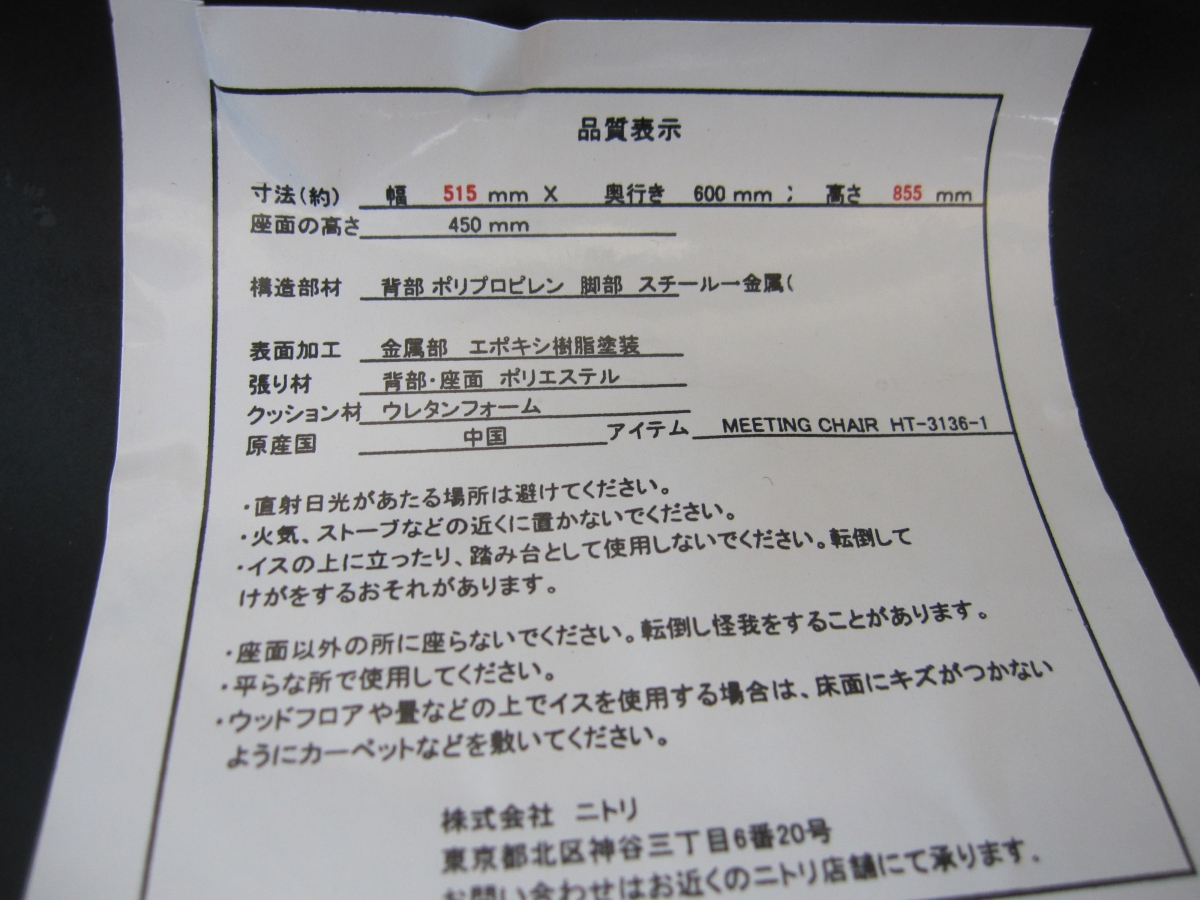 品質表示
寸法(約) 幅 515 mm X 奥行き 600 mm ; 高さ 855 mm
座面の高さ 450 mm
構造部材 背部 ポリプロピレン 脚部 スチール→金属(
表面加工 金属部 エポキシ樹脂塗装
張り材 背部・座面 ポリエステル
クッション材 ウレタンフォーム
原産国 中国 アイテム MEETING CHAIR HT-3136-1
・直射日光があたる場所は避けてください。
・火気、ストーブなどの近くに置かないでください。
・イスの上に立ったり、踏み台として使用しないでください。転倒して
けがをするおそれがあります。
・座面以外の所に座らないでください。転倒し怪我をすることがあります。
・平らな所で使用してください。
・ウッドフロアや畳などの上でイスを使用する場合は、床面にキズがつかない
ようにカーペットなどを敷いてください。
株式会社 ニトリ
東京都北区神谷三丁目6番20号
お問い合わせはお近くのニトリ店舗にて承ります.